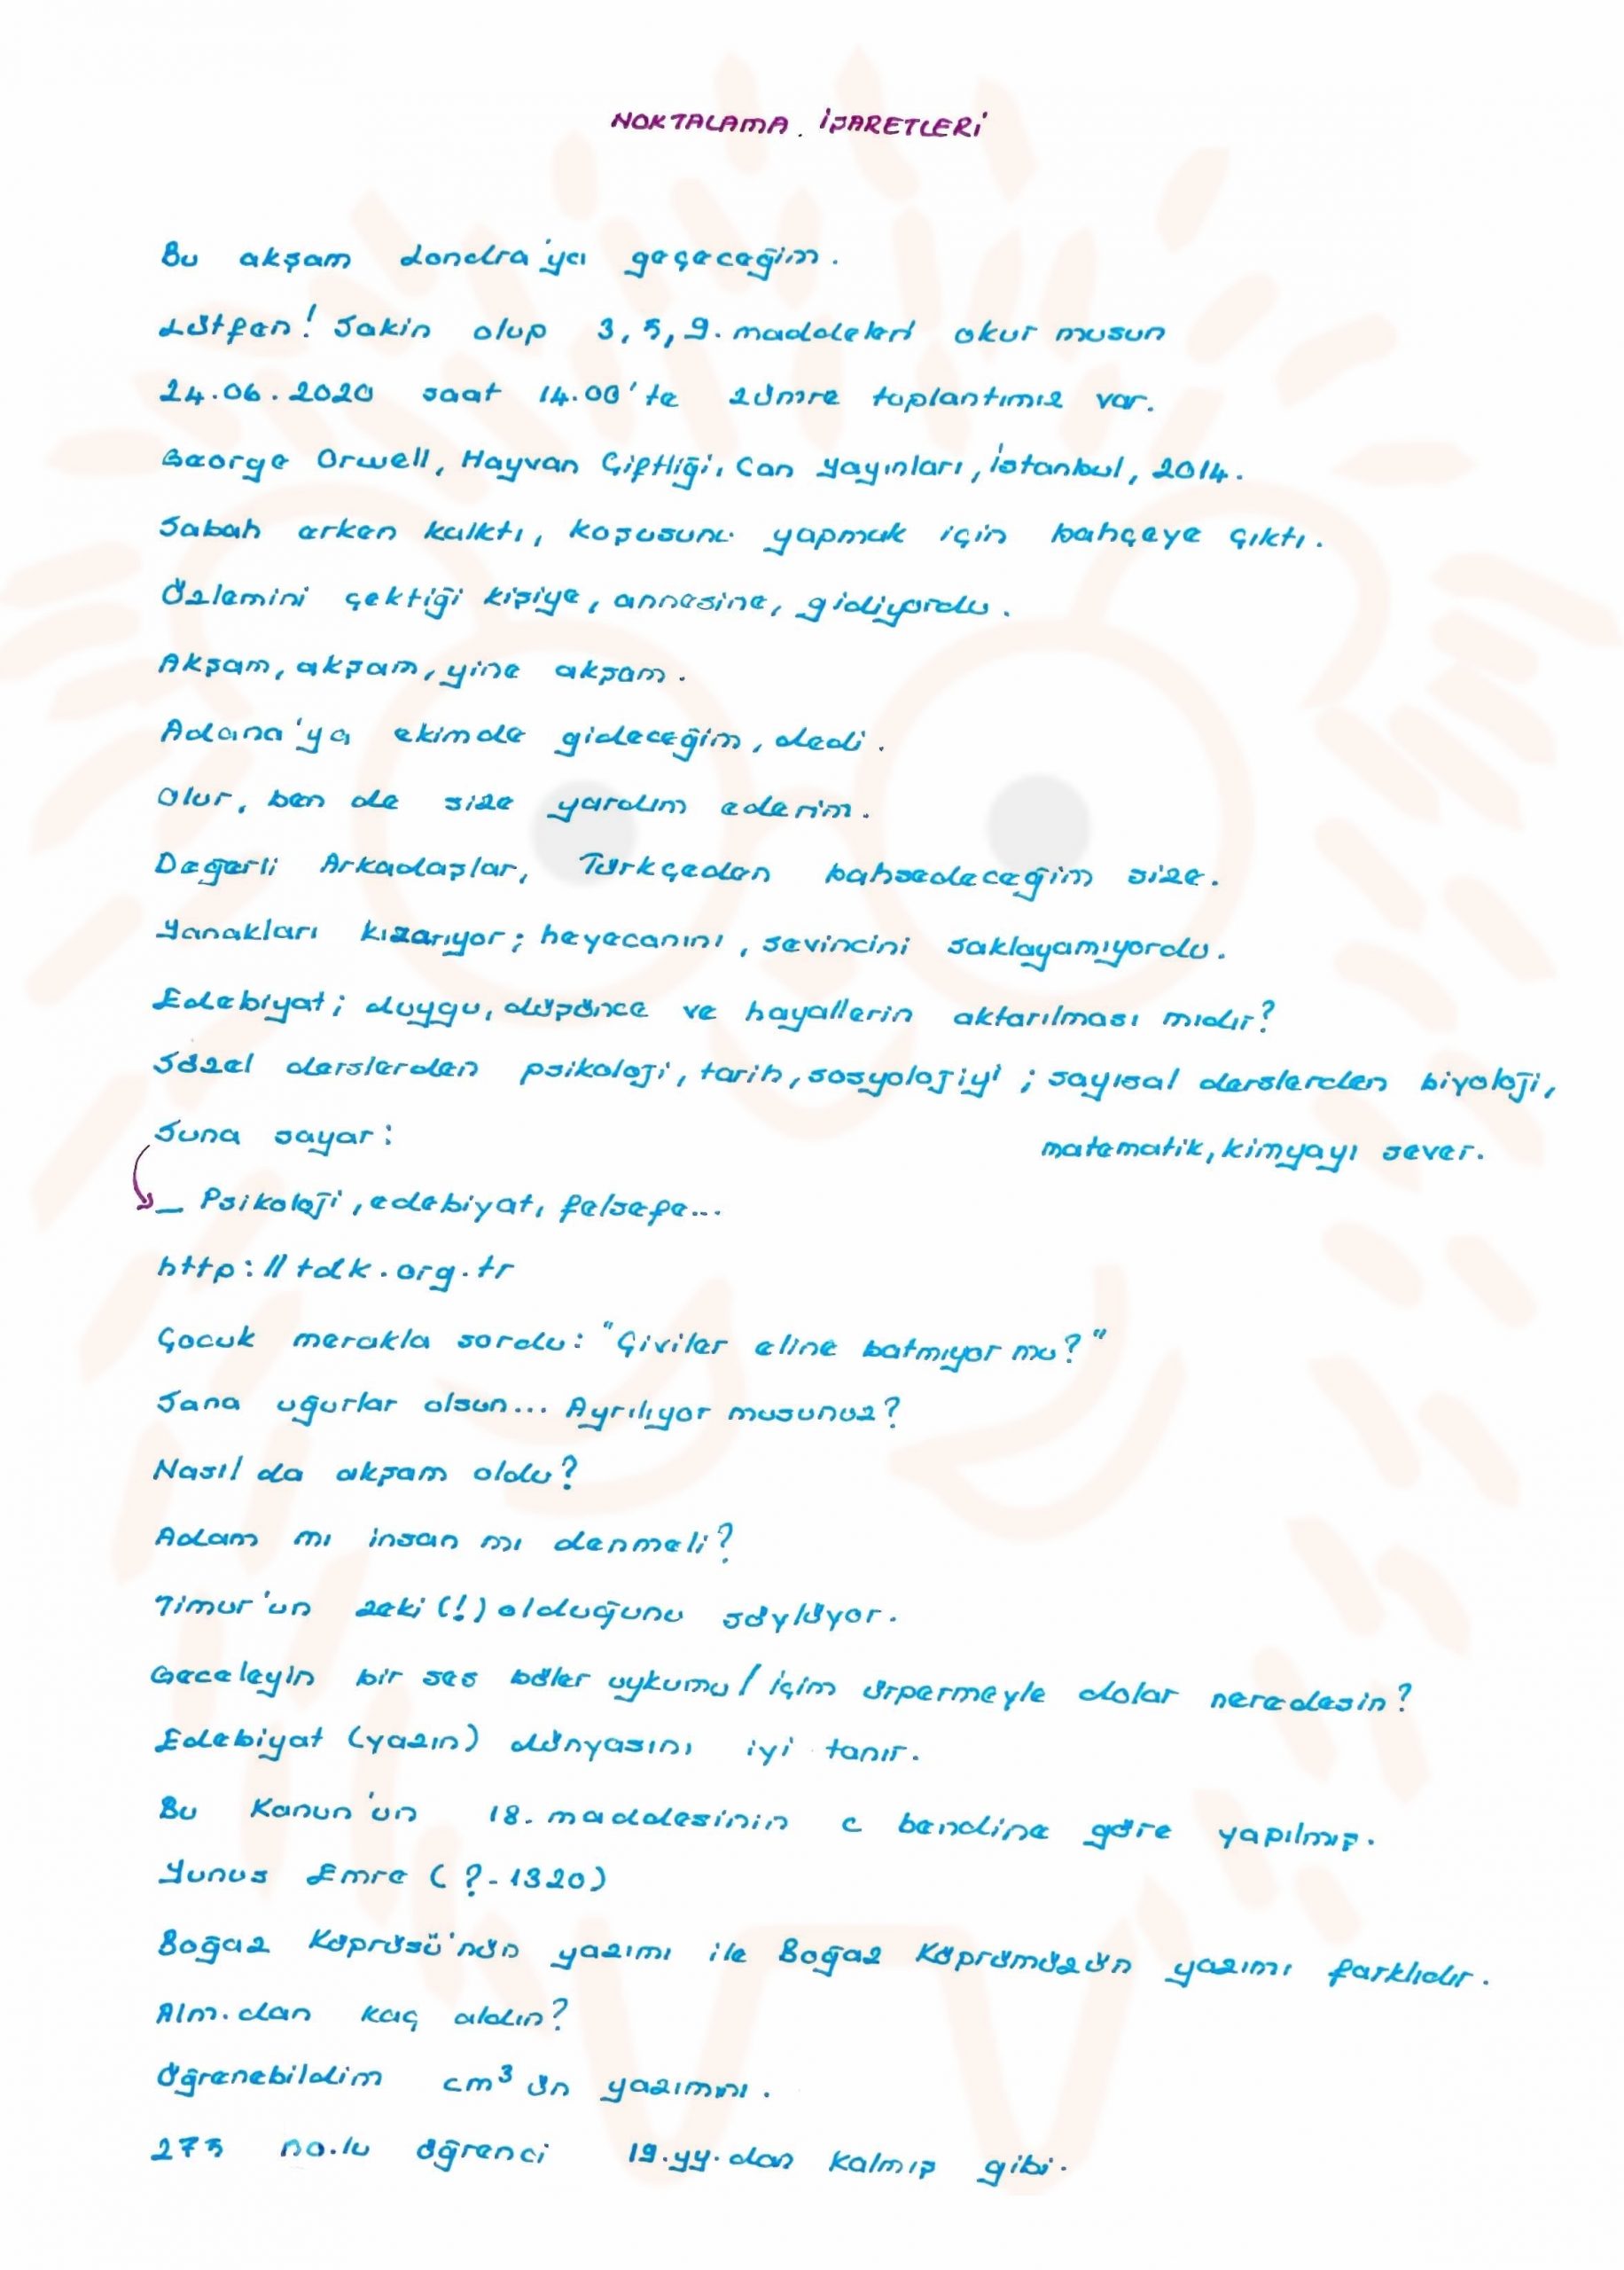 NOKTALAMA İŞARETLERİ
Bu akşam Londra'ya geçeceğim.
Lütfen! Sakin olup 3, 5, 9. maddeleri okur musun
24.06.2020 saat 14.00'te zümre toplantımız var.
George Orwell, Hayvan Çiftliği, Can Yayınları, İstanbul, 2014.
Sabah erken kalktı, koşusunu yapmak için bahçeye çıktı.
Özlemini çektiği kişiye, annesine, gidiyordu.
Akşam, akşam, yine akşam.
Adana'ya ekimde gideceğim, dedi.
Olur, ben de size yardım ederim.
Değerli Arkadaşlar, Türkçeden bahsedeceğim size.
Yanakları kızarıyor; heyecanını, sevincini saklayamıyordu.
Edebiyat; duygu, düşünce ve hayallerin aktarılması mıdır?
Sözel derslerden psikoloji, tarih, sosyolojiyi; sayısal derslerden biyoloji,
matematik, kimyayı sever.
Suna sayar:
_ Psikoloji, edebiyat, felsefe...
http://tdk.org.tr
Çocuk merakla sordu: "Çiviler eline batmıyor mu?"
Sana uğurlar olsun... Ayrılıyor musunuz?
Nasıl da akşam oldu?
Adam mı insan mı denmeli?
Timur'un zeki (!) olduğunu söylüyor.
Geceleyin bir ses böler uykumu / İçim ürpermeyle dolar neredesin?
Edebiyat (yazın) dünyasını iyi tanır.
Bu Kanun'un 18. maddesinin c bendine göre yapılmış.
Yunus Emre (?-1320)
Boğaz Köprüsü'nün yazımı ile Boğaz Köprümüzün yazımı farklıdır.
Alm.dan kaç aldın?
Öğrenebildim cm³ ün yazımını.
275 no.lu öğrenci 19.yy.dan kalmış gibi.